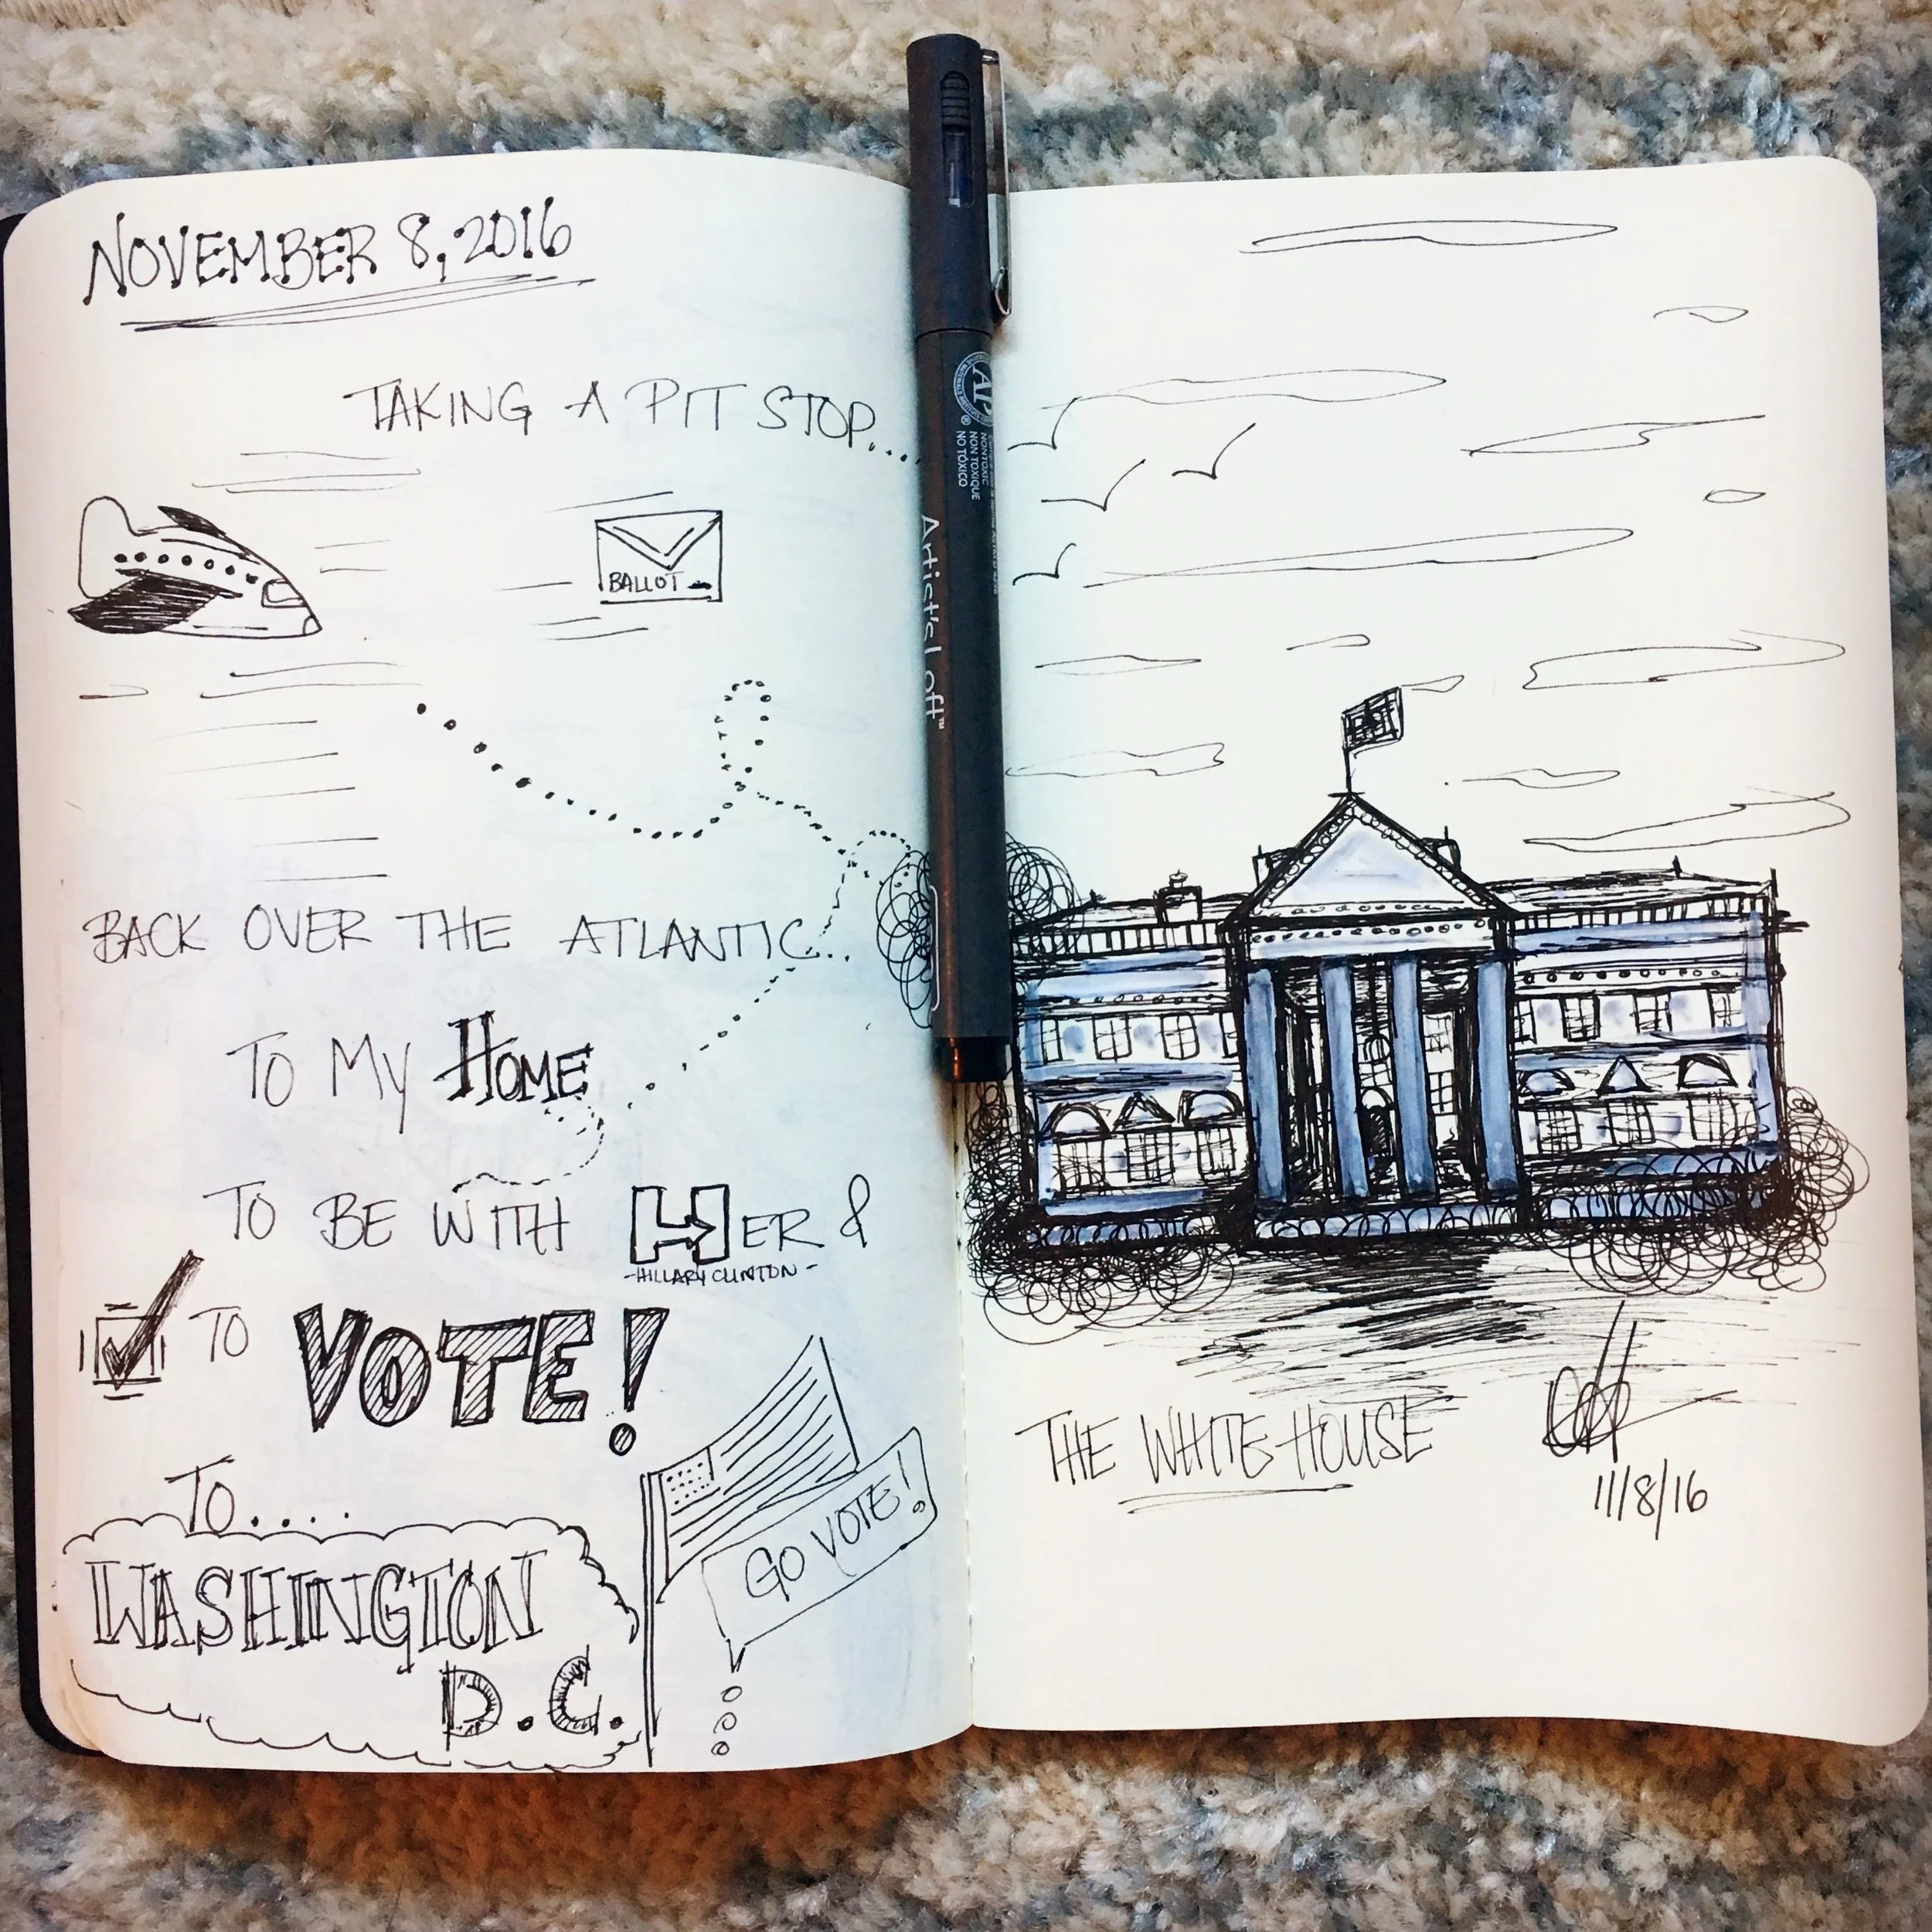 NOVEMBER 8, 2016
TAKING A PIT STOP...
BALLOT
BACK OVER THE ATLANTIC...
TO MY HOME
TO BE WITH HER &
-HILLARY CLINTON-
TO VOTE!
TO....
GO VOTE!
WASHINGTON
D.C.
AP
NON TOXIQUE
NO TÓXICO
Artist's Loft™
THE WHITE HOUSE
11/8/16